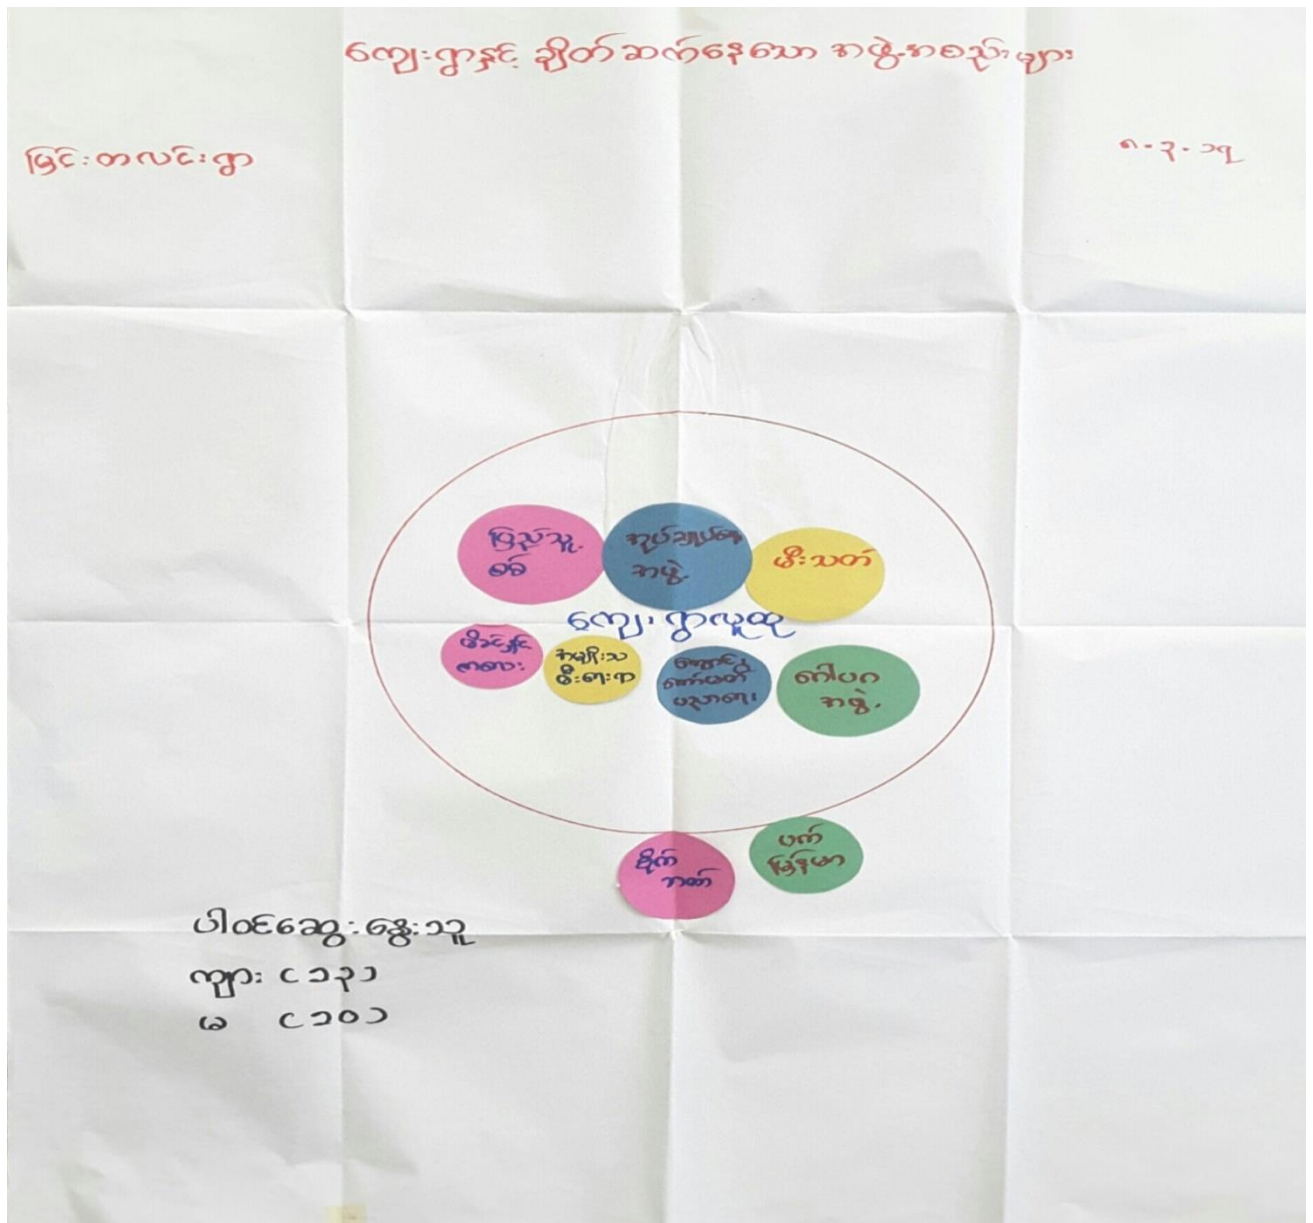 ကျေးရွာနှင့် ချိတ်ဆက်နေသော အဖွဲ့အစည်းများ
မြင်းတလင်းရွာ
၈-၃-၁၇
ပြည်သူ့
စစ်
အုပ်ချုပ်ရေး
အဖွဲ့
မီးသတ်
ကျေးရွာလူထု
မိခင်နှင့်
ကလေး
အမျိုးသ
မီးရေးရာ
ကျောင်း
ကော်မတီ
ပညာရေး
ဂေါပက
အဖွဲ့
စိုက်
ဘဏ်
ပက်
မြန်မာ
ပါဝင်ဆွေးနွေးသူ
ကျား (၁၃)
မ (၁၀)